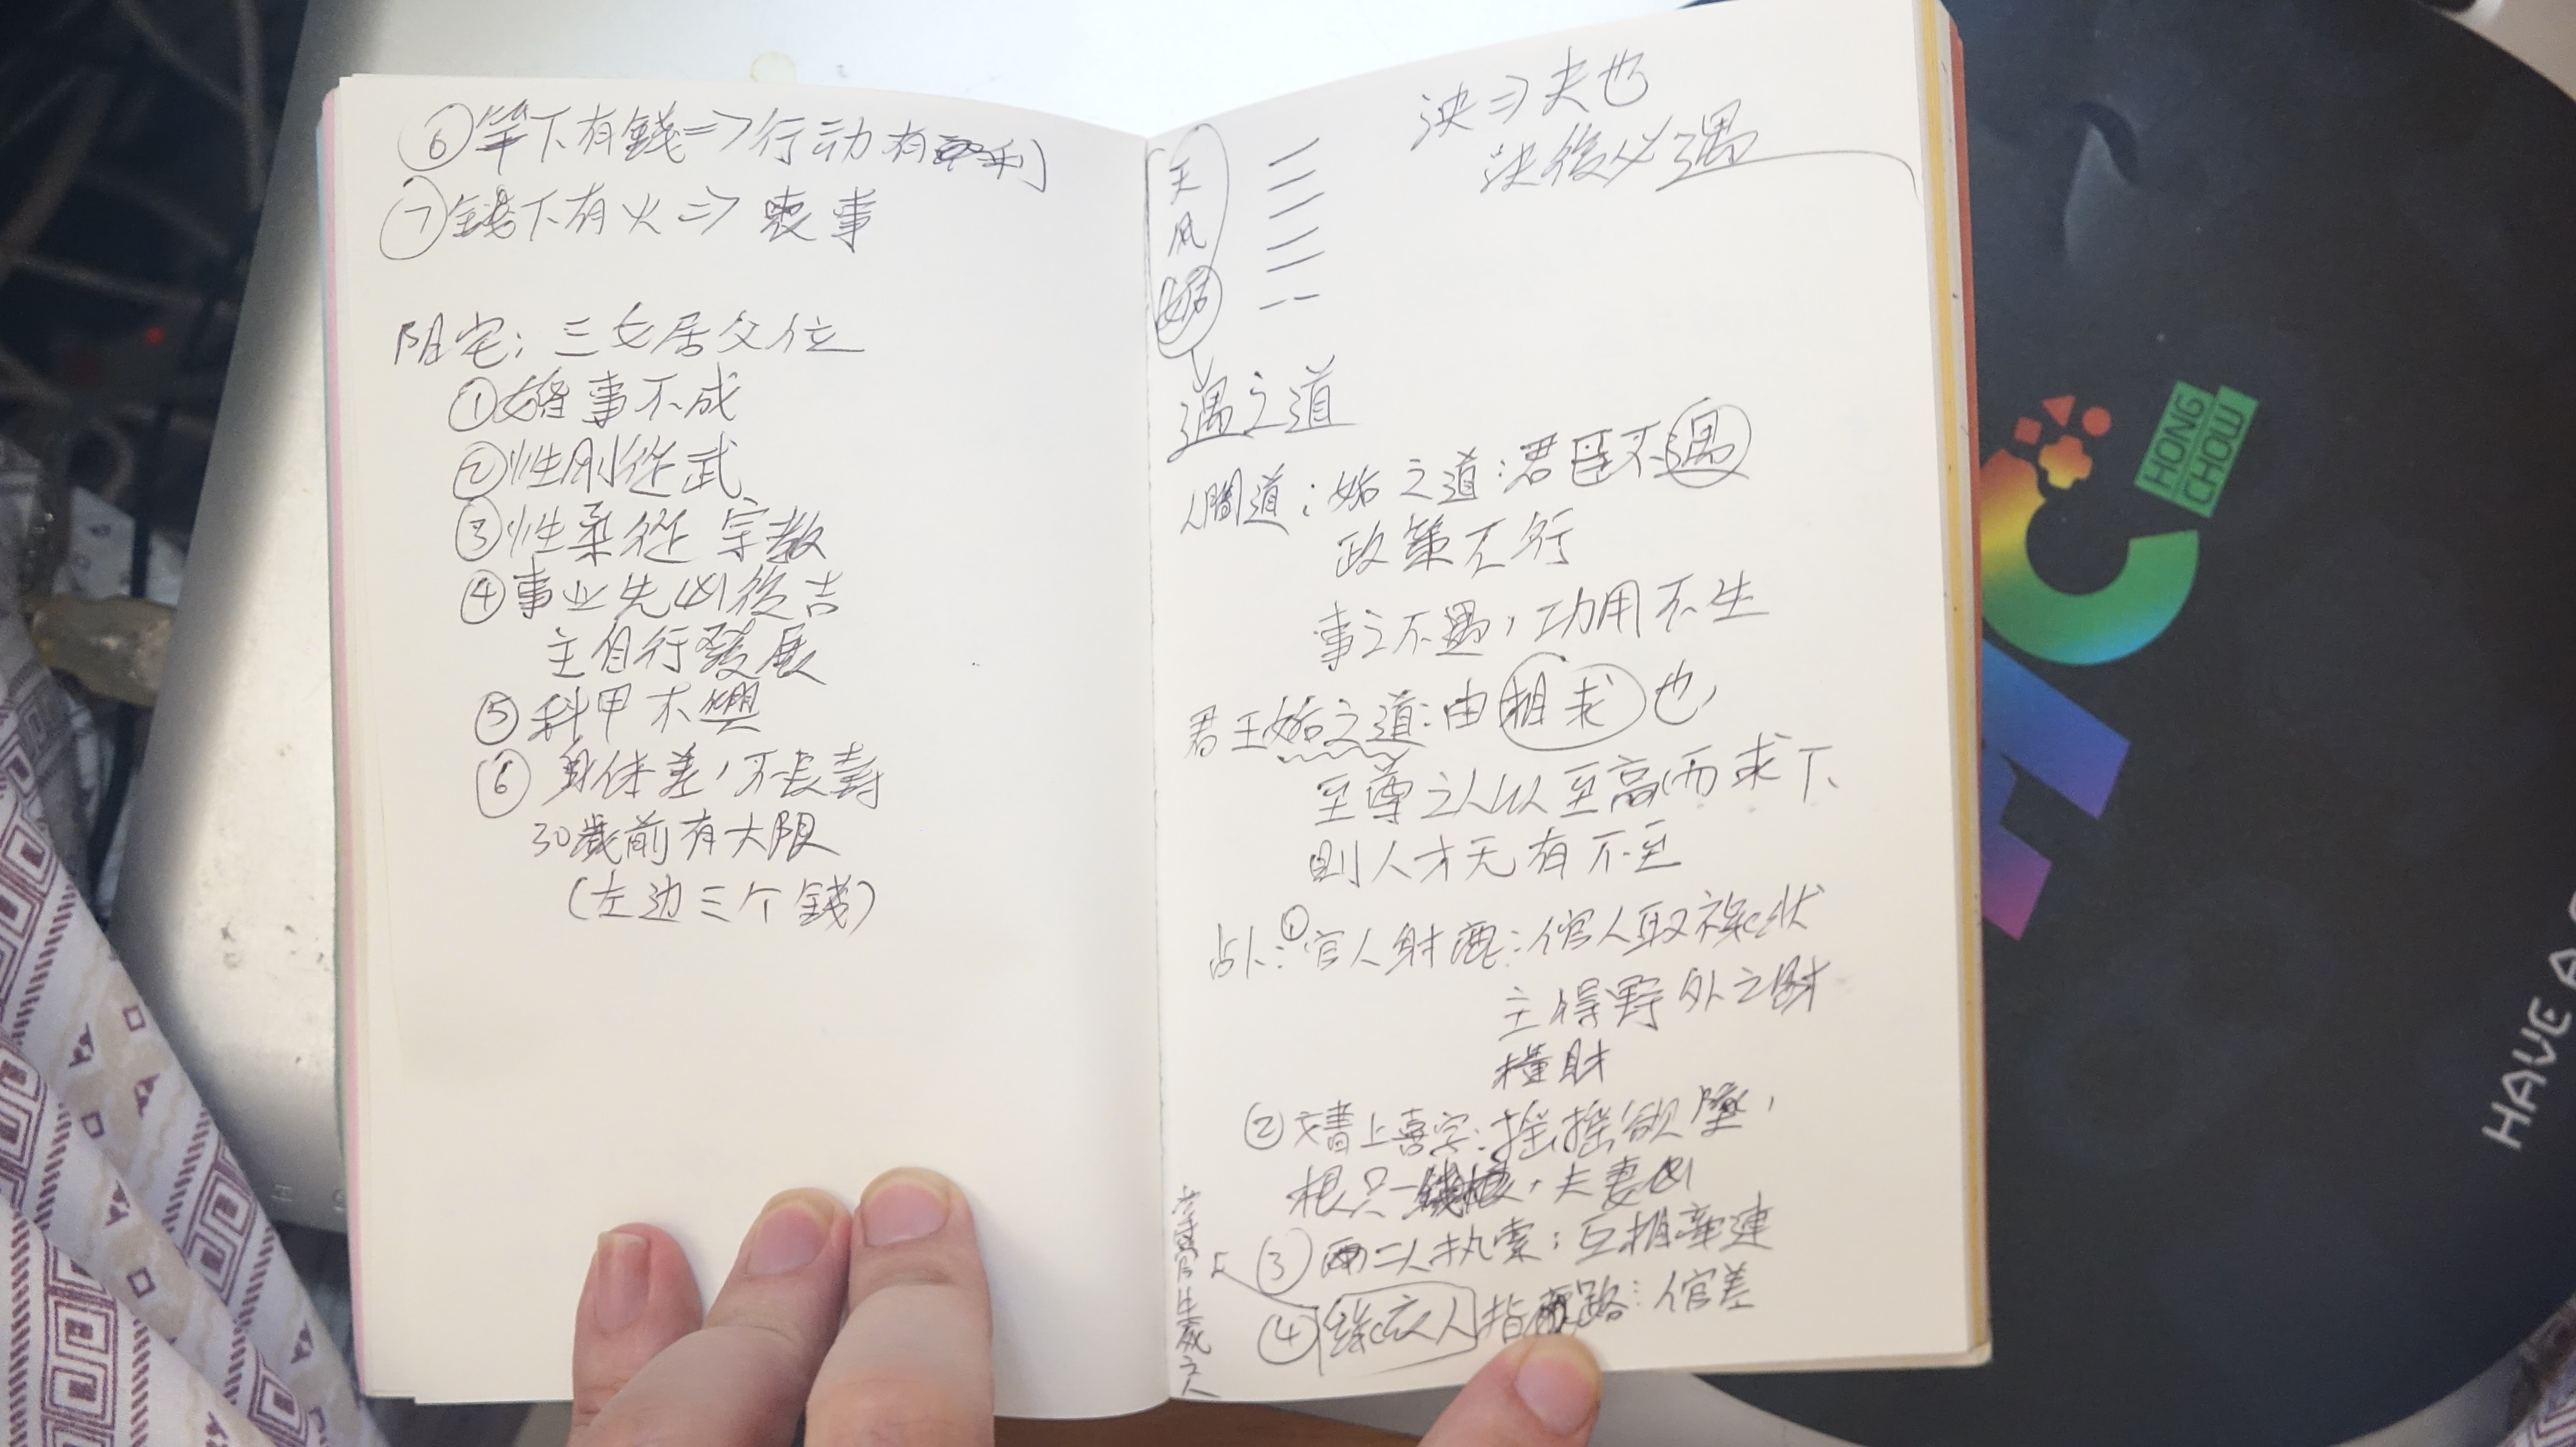 ⑥竿下有錢=>行动有利
⑦錢下有火=>喪事
阳宅：三女居父位
①婚事不成
②性刚從武
③性柔從宗教
④事业先凶後吉
主自行發展
⑤科甲不興
⑥身体差，不長壽
30歲前有大限
(左边三个錢)
決=>夬也
決後必遇
天
风
姤
遇之道
人間道：姤之道：君臣不遇
政策不行
事之不遇，功用不生
君王姤之道：由相求也，
至尊之人以至高而求下
則人才无有不至
占卜：①官人射鹿：官人取祿狀
主得野外之財
橫財
②文書上喜字：摇摇欲墜，
根只一 夫妻凶
③二人执索：互相牽連
④綠衣人指路：官差
HONG
CHOW
HC
HAVE A